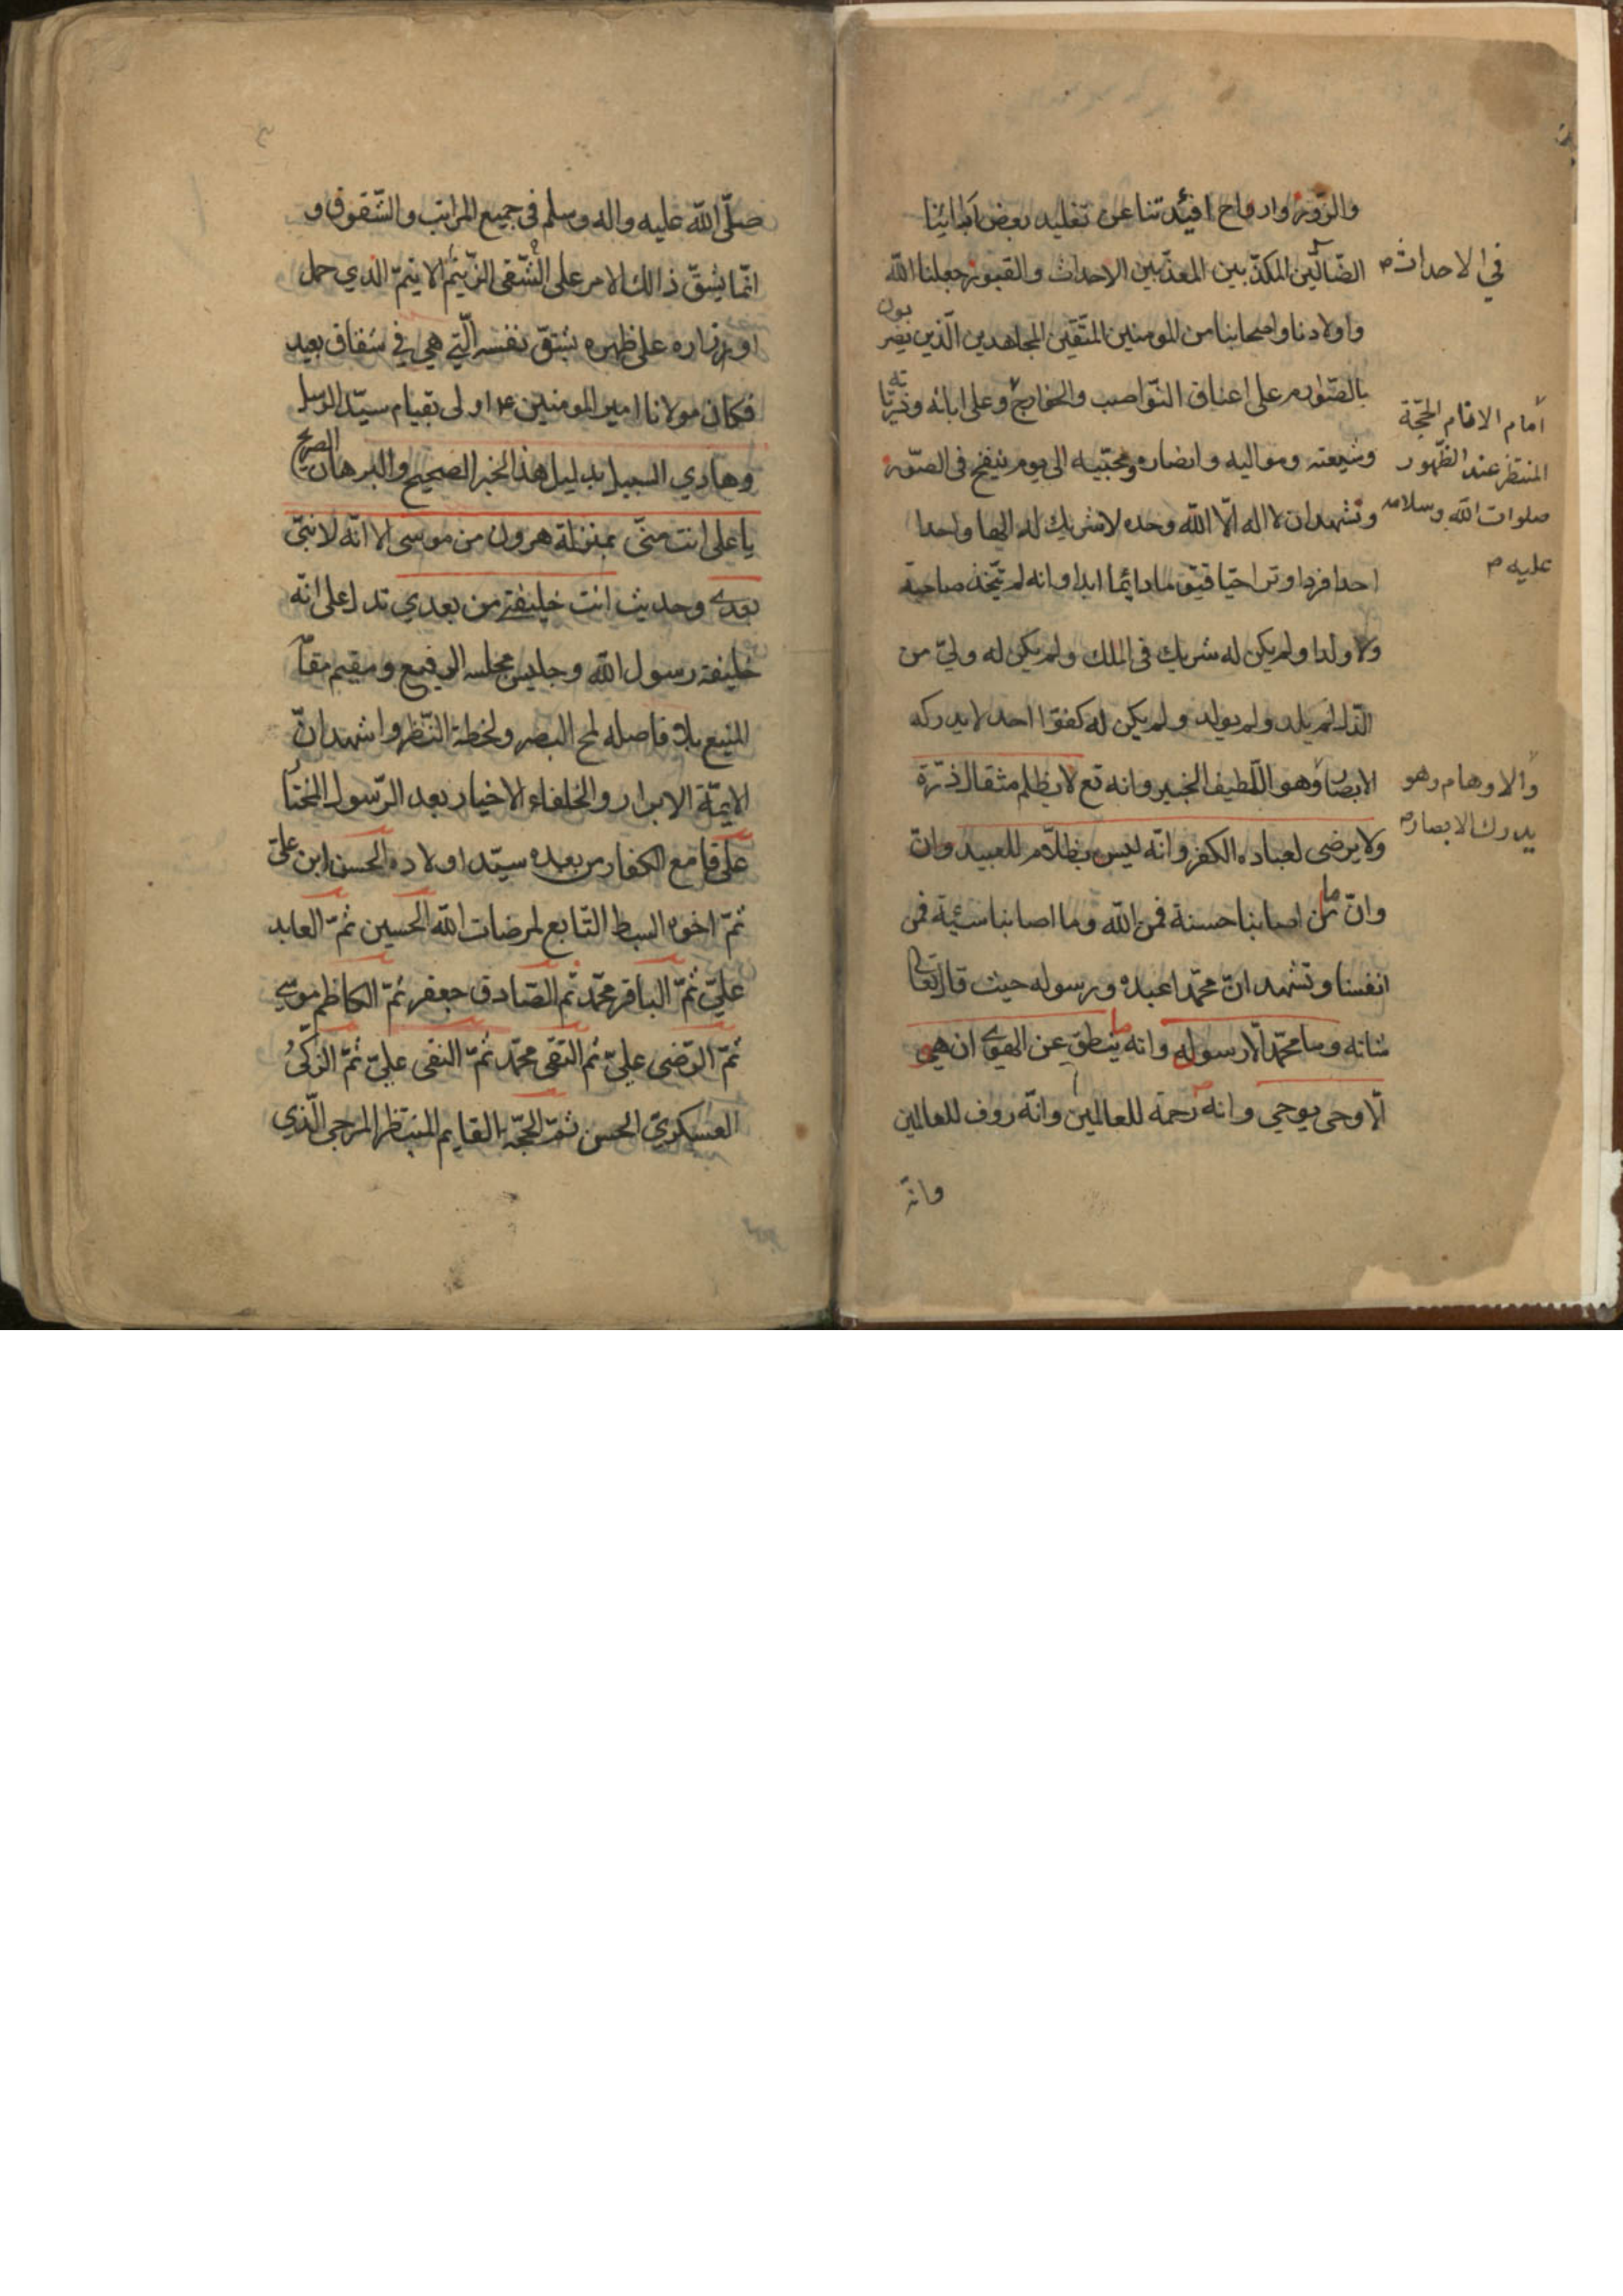 والزّور وارواح افئدتنا عن تقليد بعض آبائينا
الضّالّين المكذّبين المعذّبين الاحداث والقبور جعلنا الله
في الاحداث
واولادنا واصحابنا من المومنين المتّقين المجاهدين الّذين يضربون
بالصّوارم على اعناق النّواصب والخوارج وعلى ابائه وذريّاته
امام الامام الحجّة
المنتظر عند الظّهور
صلوات الله وسلامه
عليه
وشيعته ومواليه وانصاره ومحبّيه الى يوم ينفخ في الصّور
ونشهد ان لا اله الّا الله وحده لا شريك له الها واحدا
احدا فردا وترا حيّا قيّوما دائما ابدا وانه لم يتّخذ صاحبة
ولا ولدا ولم يكن له شريك في الملك ولم يكن له وليّ من
الذّل لم يلد ولم يولد ولم يكن له كفوا احد لا يدركه
الابصار وهو اللّطيف الخبير وانه تع لا يظلم مثقال ذرّة
والاوهام وهو
يدرك الابصار
ولا يرضى لعباده الكفر وانّه ليس بظلّام للعبيد وانّ
وانّ ما اصابنا حسنة فمن الله وما اصابنا سئية فمن
انفسنا ونشهد انّ محمّدا عبده ورسوله حيث قال تعالى
شانه وما محمّد الّا رسول وانه ما ينطق عن الهوى ان هي
الّا وحى يوحى وانه رحمة للعالمين وانّه روف للعالمين
وانّه
صلّى الله عليه واله وسلم في جميع المراتب والشّقوق و
انّما يشقّ ذالك الامر على الشّقى الزّنيم الاثيم الّذي حمل
اوزاره على ظهره بشقّ نفسه الّتي هي في شقاق بعيد
فكان مولانا امير المومنين ع اولى بقيام سيّد الرسل
وهادي السبيل بدليل هذا الخبر الصحيح والبرهان الصريح
يا على انت منّى بمنزلة هرون من موسى الا انّه لا نبىّ
بعدى وحديث انت خليفتي من بعدي تدل على انّه
خليفة رسول الله وجليس مجلسه الرفيع ومقيم مقام
المنيع بلا فاصله لمح البصر ولحظة النّظر واشهد انّ
الايمّة الابرار والخلفاء الاخيار بعد الرّسول المختار
على قامع الكفار من بعده سيّد اولاده الحسن ابن علىّ
ثمّ اخوه السبط التّابع لمرضات الله الحسين ثمّ العابد
عليّ ثمّ الباقر محمّد ثم الصّادق جعفر ثمّ الكاظم موسى
ثمّ الرّضى علىّ ثم التقى محمّد ثمّ النقى علىّ ثمّ الزّكىّ
العسكريّ الحسن ثمّ الحجّة القايم المنتظر المرجى الّذى